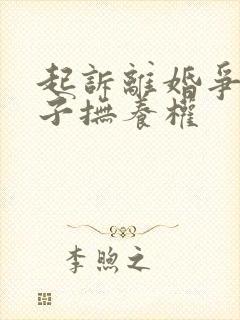 起訴離婚爭
子撫養權
李煦之